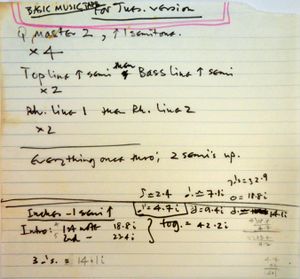 BASIC MUSIC TAPE For Inst. version
Q, Master 2, ↑ 1 semitone.
× 4
Top line ↑ semi then Bass line ↑ semi
× 2
Rh. line 1 then Rh. Line 2
× 2
Everything once thro; 2 semi's up.
= 32.9
♩ = 2.4 = 7.1i = 18.8i
Inches - 1 semi ↑ = 4.7i = 9.4i 14.1i
Intro: 1st note 18.8i
2nd - 23.4i
tog. = 42.2i
3 's. = 14.1i